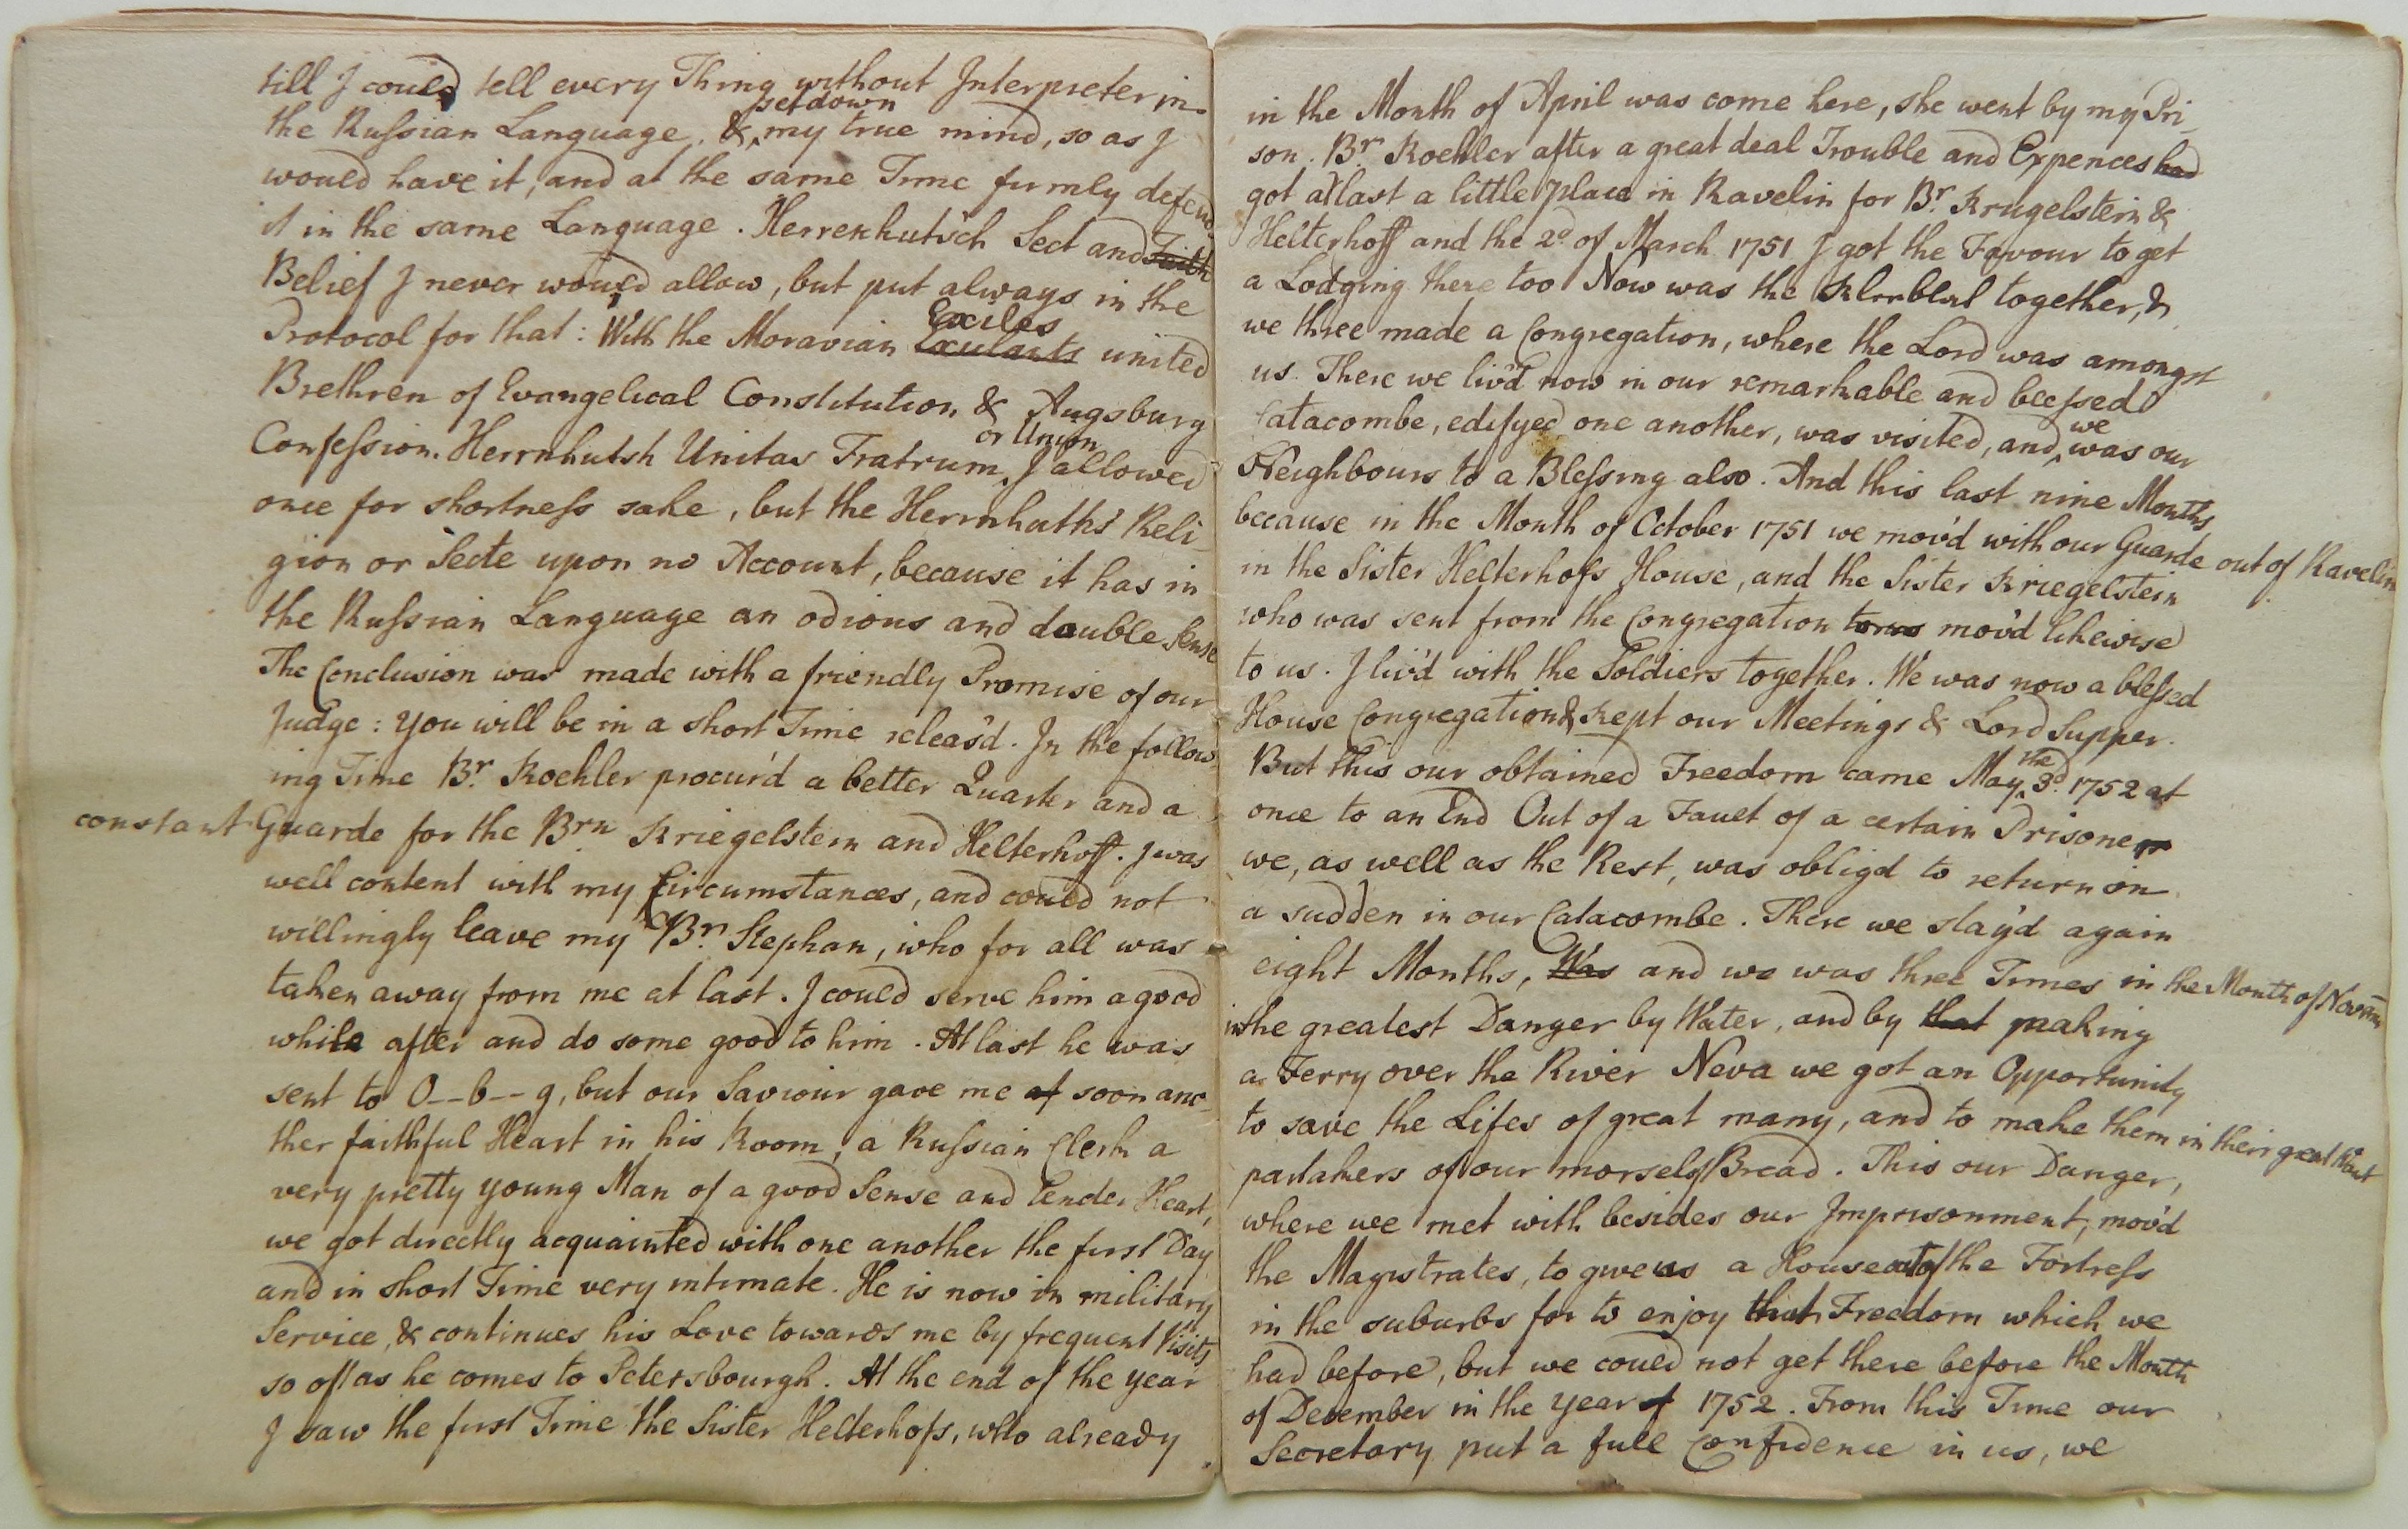 till I could tell every Thing without Interpreter in
the Russian Language, & set down my true mind, so as I
would have it, and at the same Time firmly defend
it in the same Language. Herrenhutsch Sect and Faith
Belief I never would allow, but put always in the
Protocol for that: With the Moravian Exulants Exiles united
Brethren of Evangelical Constitution & Augsburg
Confession. Herrnhutsh Unitas Fratrum or Union I allowed
once for shortness sake, but the Herrnhuths Reli-
gion or Secte upon no Account, because it has in
the Russian Language an odious and double Sense
The Conclusion was made with a friendly Promise of our
Judge: you will be in a short Time releas'd. In the follow-
ing Time Br. Koehler procur'd a better Quarter and a
constant Guarde for the Brn Kriegelstein and Helterhoff. I was
well content with my Circumstances, and could not
willingly leave my Br. Stephan, who for all was
taken away from me at last. I could serve him a good
while after and do some good to him. At last he was
sent to O--b--g, but our Saviour gave me at soon ano-
ther faithful Heart in his Room, a Russian Clerk a
very pretty young Man of a good Sense and tender Heart,
we got directly acquainted with one another the first Day
and in short Time very intimate. He is now in military
Service, & continues his Love towards me by frequent Visits
so oft as he comes to Petersbourgh. At the end of the year
I saw the first Time the Sister Helterhofs, who already
in the Month of April was come here, she went by my Pri-
son. Br. Koehler after a great deal Trouble and Expences had
got at last a little place in Ravelin for Br. Krugelstein &
Helterhoff and the 2d of March 1751 I got the Favour to get
a Lodging there too Now was the together, &
we three made a Congregation, where the Lord was amongst
us. There we liv'd now in our remarkable and blessed
Catacombe, edifyed one another, was visited, and we was our
Neighbours to a Blessing also. And this last nine Months
because in the Month of October 1751 we mov'd with our Guarde out of Ravelin
in the Sister Helterhofs House, and the Sister Kriegelstein
who was sent from the Congregation to us mov'd likewise
to us. I liv'd with the Soldiers together. We was now a blessed
House Congregation & kept our Meetings & Lord Supper.
But this our obtained Freedom came May the 3d. 1752 at
once to an End Out of a Fault of a certain Prisoner
we, as well as the Rest, was oblig'd to return in
a sudden in our Catacombe. There we stay'd again
eight Months, Was and we was three Times in the Month of Novem
in the greatest Danger by Water, and by that making
a Ferry over the River Neva we got an Opportunity
to save the Lifes of great many, and to make them in their great Want
partakers of our morsels Bread. This our Danger,
where we met with besides our Imprisonment, mov'd
the Magistrates, to give us a House out of the Fortress
in the suburbs for to enjoy that Freedom which we
had before, but we could not get there before the Month
of December in the year of 1752. From this Time our
Secretary put a full Confidence in us, we